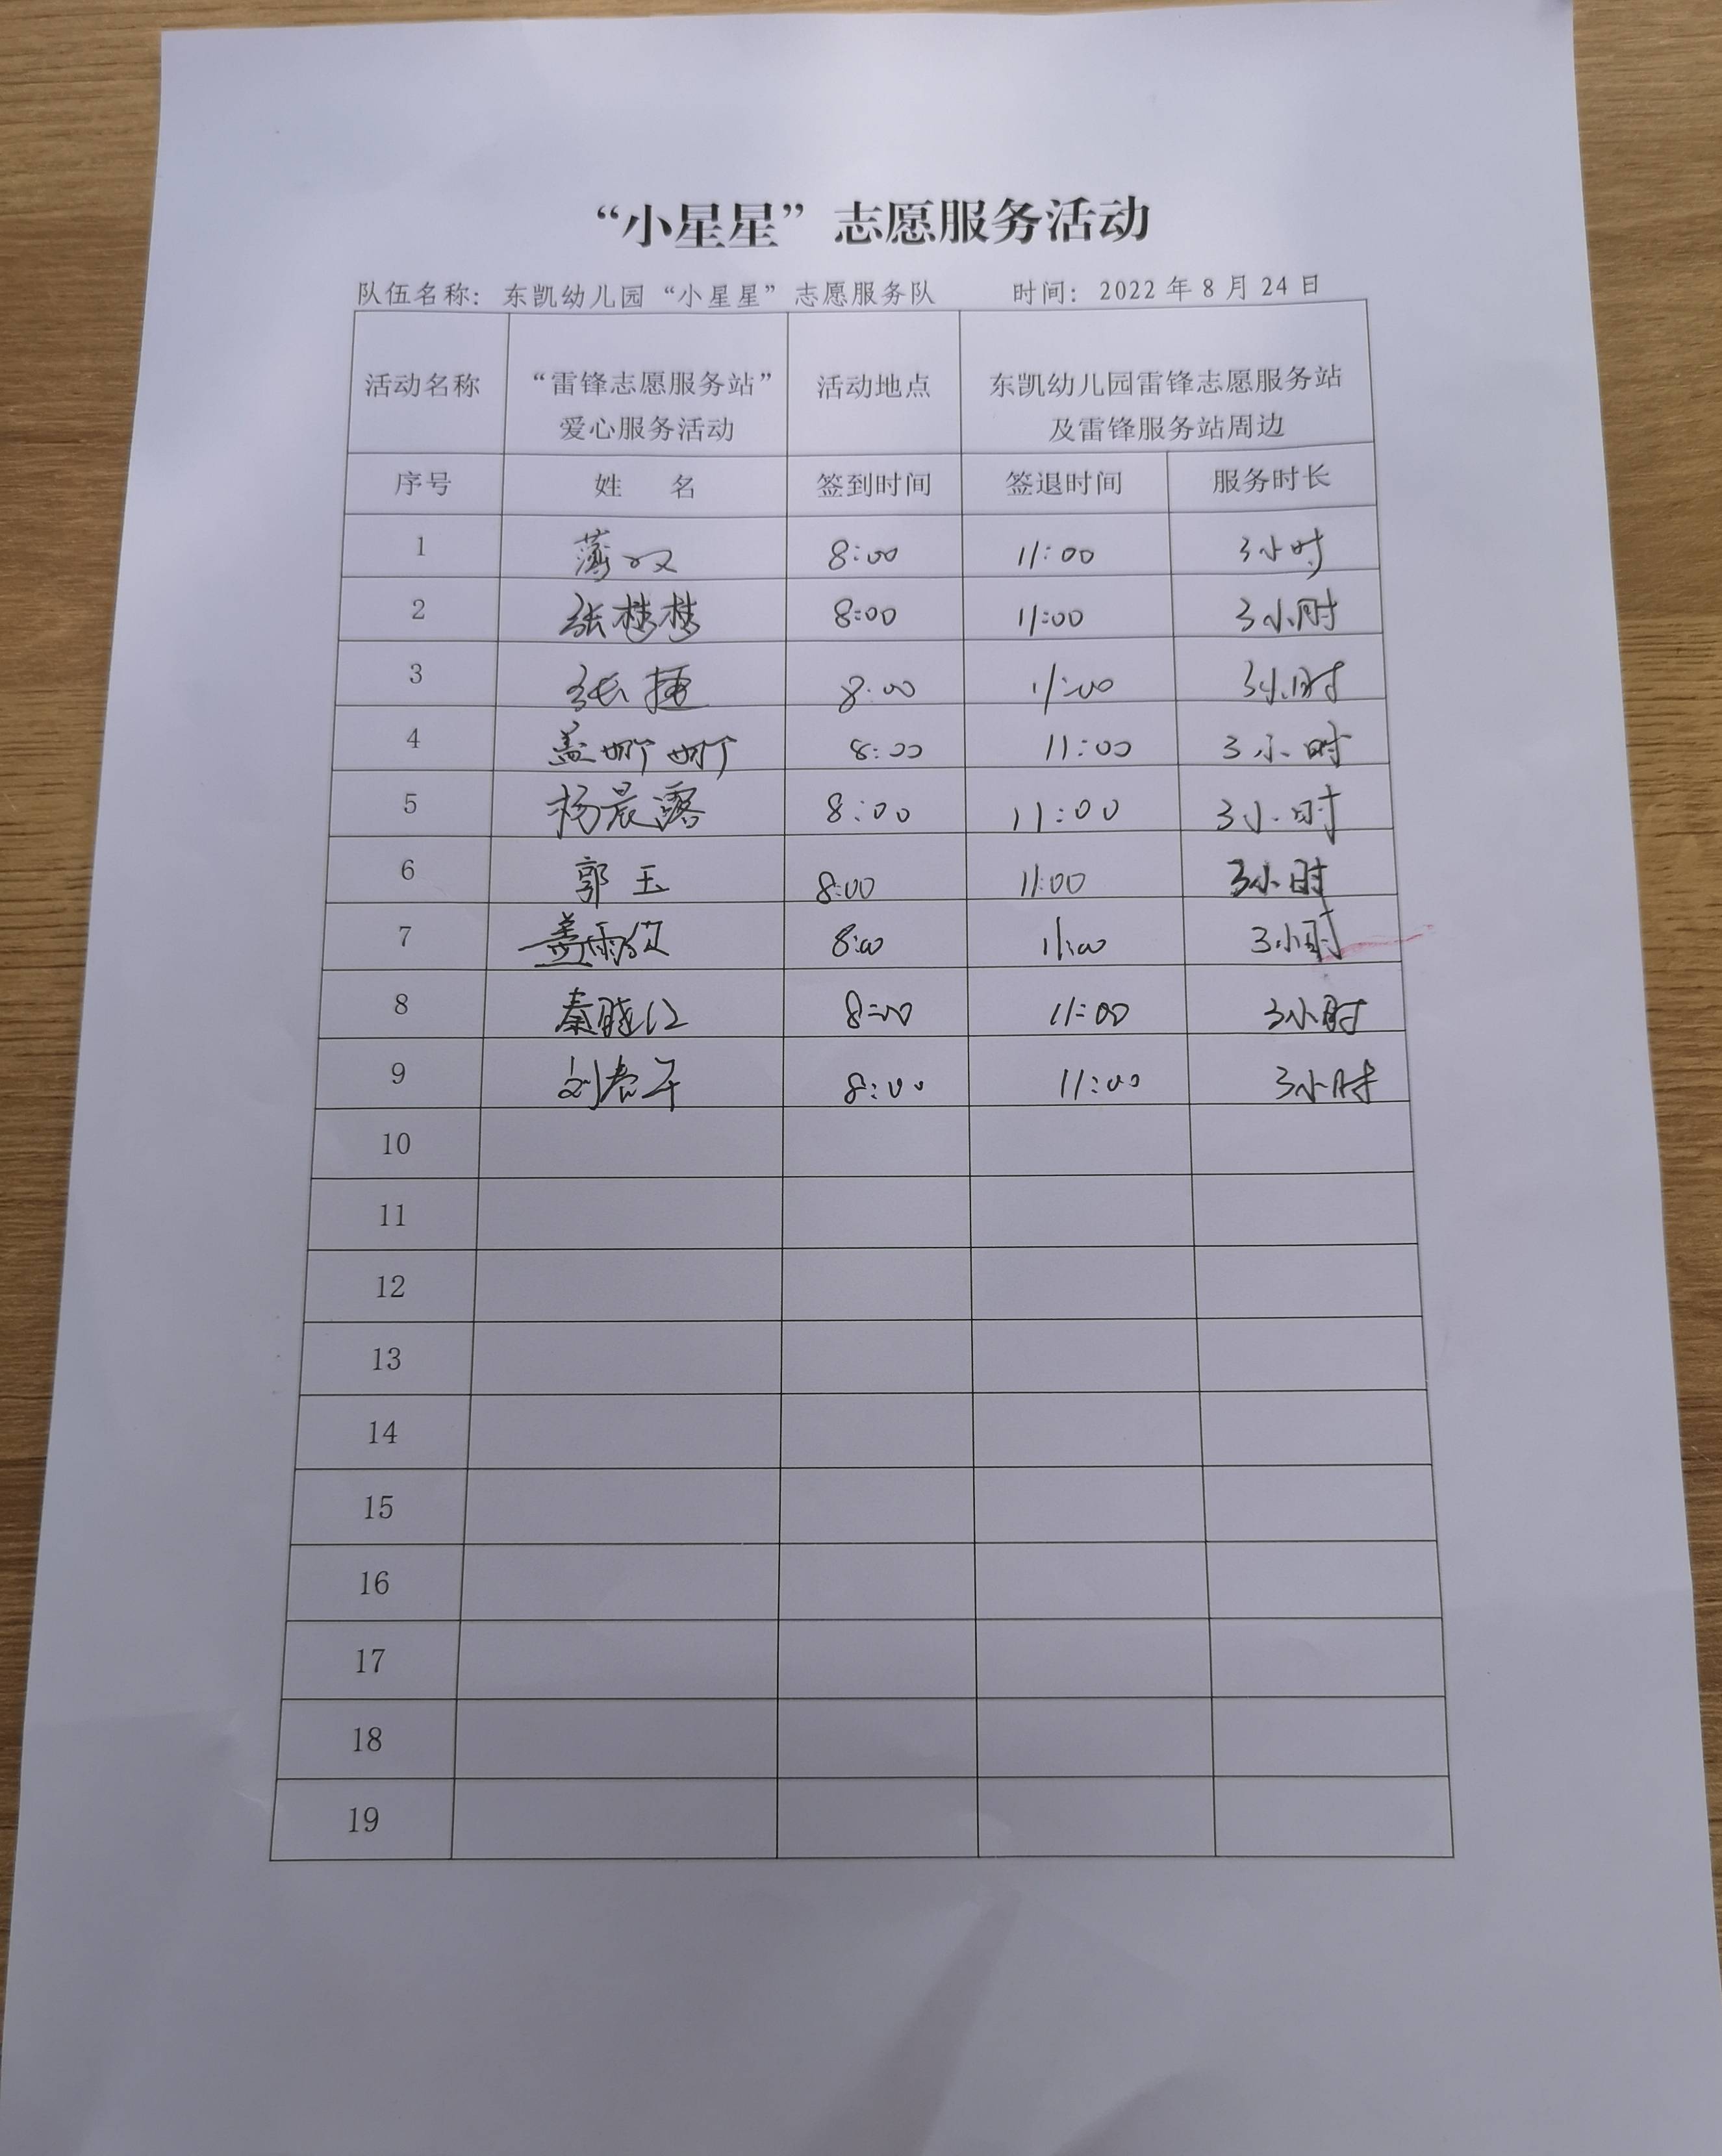 “小星星”志愿服务活动
队伍名称：东凯幼儿园“小星星”志愿服务队 时间：2022年8月24日
活动名称 “雷锋志愿服务站”爱心服务活动 活动地点 东凯幼儿园雷锋志愿服务站及雷锋服务站周边
序号 姓 名 签到时间 签退时间 服务时长
1 薄双 8:00 11:00 3小时
2 张梦梦 8:00 11:00 3小时
3 张捷 8:00 11:00 3小时
4 盖娜娜 8:00 11:00 3小时
5 杨晨露 8:00 11:00 3小时
6 郭玉 8:00 11:00 3小时
7 盖雨 8:00 11:00 3小时
8 秦晓红 8:00 11:00 3小时
9 刘 8:00 11:00 3小时
10
11
12
13
14
15
16
17
18
19